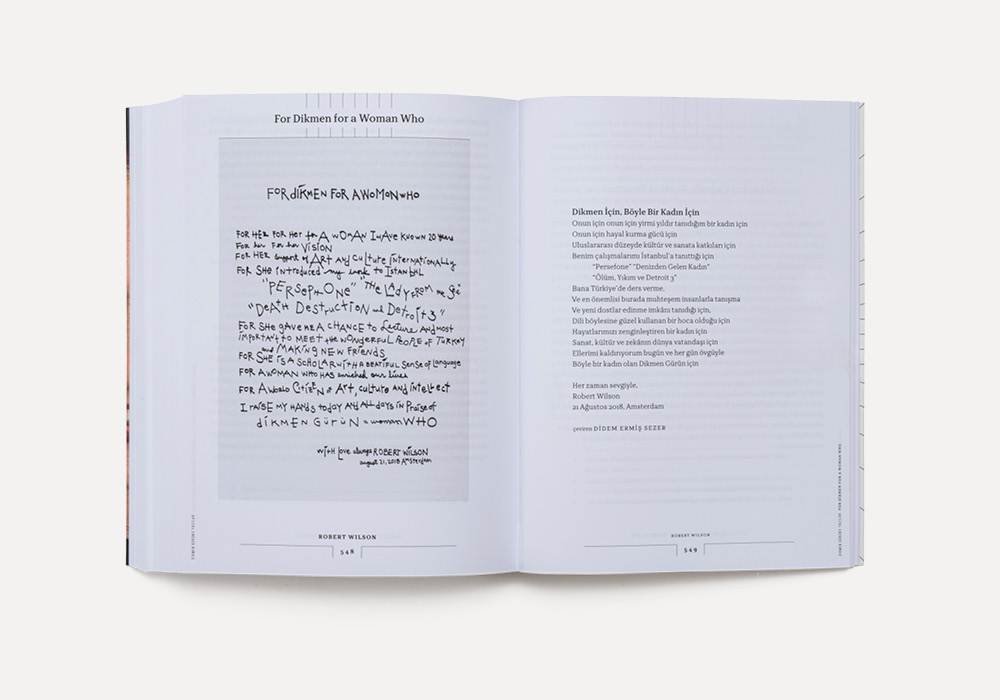 For Dikmen for a Woman Who
FOR DİKMEN FOR A WOMAN WHO
FOR HER FOR HER for A WOMAN I HAVE KNOWN 20 years
FOR her For her VISION
FOR HER support of ART and CULture INternationally
FOR SHe introduced my work to ISTANBUL
"PERSEPHONE" "the LADY FROM the Sea"
"DEATH DESTRUCTION and DETROIT 3"
FOR SHe GAVE ME A CHANCE to Lecture AND MOST
IMPORTANT to MEET the WONDERFUL PEOPLE OF TURKEY
and MAKING NEW FRIENDS
FOR SHE IS A SCHOLAR WITH A BEATIFUL Sense of Language
FOR A WOMAN WHO HAS enriched our lives
FOR A WORLD CITIZEN of Art, culture AND INtellect
I RAISE MY HANDS today AND ALL DAYS in Praise of
dİKMEN GÜRÜN a woman WHO
with love always ROBERT WILSON
august 21, 2018 AMSterdam
ROBERT WILSON
548
Dikmen İçin, Böyle Bir Kadın İçin
Onun için onun için yirmi yıldır tanıdığım bir kadın için
Onun için hayal kurma gücü için
Uluslararası düzeyde kültür ve sanata katkıları için
Benim çalışmalarımı İstanbul'a tanıttığı için
"Persefone" "Denizden Gelen Kadın"
"Ölüm, Yıkım ve Detroit 3"
Bana Türkiye'de ders verme,
Ve en önemlisi burada muhteşem insanlarla tanışma
Ve yeni dostlar edinme imkânı tanıdığı için,
Dili böylesine güzel kullanan bir hoca olduğu için
Hayatlarımızı zenginleştiren bir kadın için
Sanat, kültür ve zekânın dünya vatandaşı için
Ellerimi kaldırıyorum bugün ve her gün övgüyle
Böyle bir kadın olan Dikmen Gürün için
Her zaman sevgiyle,
Robert Wilson
21 Ağustos 2018, Amsterdam
çeviren DİDEM ERMİŞ SEZER
ROBERT WILSON
549